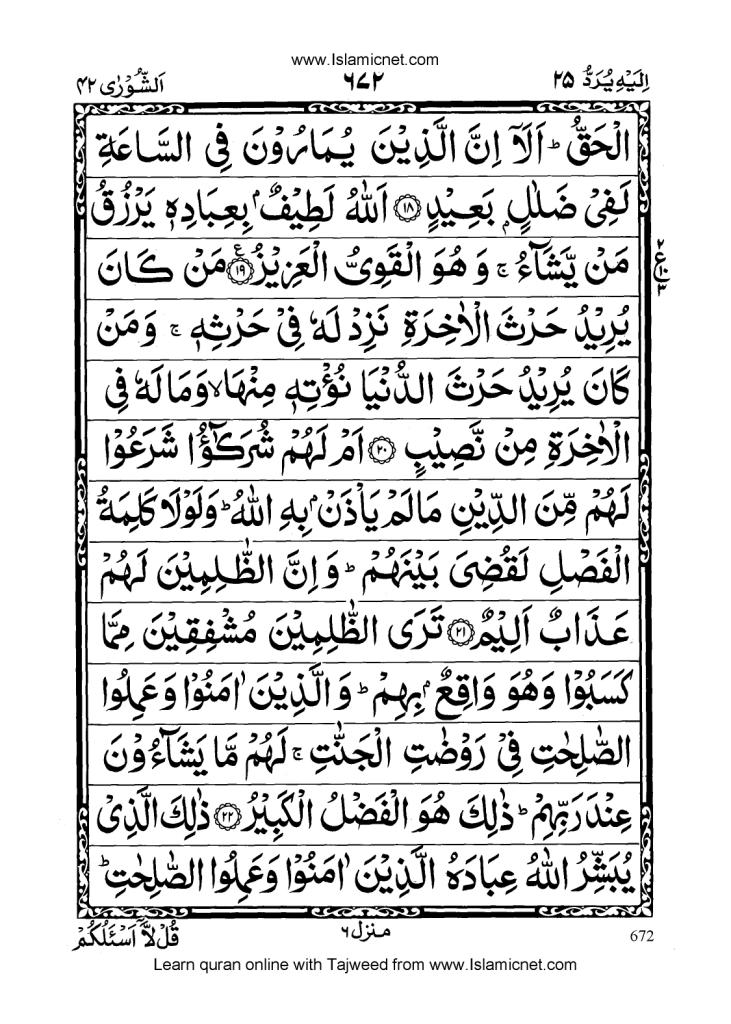 www.Islamicnet.com
اِلَيْهِ يُرَدُّ ۲۵ ٦٧٢ اَلشُّوْرٰی ۴۲
الْحَقُّ ؕ اَلَاۤ اِنَّ الَّذِيْنَ يُمَارُوْنَ فِی السَّاعَةِ
لَفِیْ ضَلٰلٍۭ بَعِيْدٍ ﴿۱۸﴾ اَللّٰهُ لَطِيْفٌۢ بِعِبَادِهٖ يَرْزُقُ
مَنْ يَّشَآءُ ۚ وَ هُوَ الْقَوِیُّ الْعَزِيْزُ ﴿۱۹﴾ ع مَنْ كَانَ
۲ ع ۱۰ ۳
يُرِيْدُ حَرْثَ الْاٰخِرَةِ نَزِدْ لَهٗ فِیْ حَرْثِهٖ ۚ وَمَنْ
كَانَ يُرِيْدُ حَرْثَ الدُّنْيَا نُؤْتِهٖ مِنْهَا ۙ وَمَا لَهٗ فِی
الْاٰخِرَةِ مِنْ نَّصِيْبٍ ﴿۲۰﴾ اَمْ لَهُمْ شُرَكٰٓؤُا شَرَعُوْا
لَهُمْ مِّنَ الدِّيْنِ مَا لَمْ يَاْذَنْۢ بِهِ اللّٰهُ ؕ وَلَوْلَا كَلِمَةُ
الْفَصْلِ لَقُضِیَ بَيْنَهُمْ ؕ وَاِنَّ الظّٰلِمِيْنَ لَهُمْ
عَذَابٌ اَلِيْمٌ ﴿۲۱﴾ تَرَی الظّٰلِمِيْنَ مُشْفِقِيْنَ مِمَّا
كَسَبُوْا وَهُوَ وَاقِعٌۢ بِهِمْ ؕ وَالَّذِيْنَ اٰمَنُوْا وَعَمِلُوا
الصّٰلِحٰتِ فِیْ رَوْضٰتِ الْجَنّٰتِ ۚ لَهُمْ مَّا يَشَآءُوْنَ
عِنْدَ رَبِّهِمْ ؕ ذٰلِكَ هُوَ الْفَضْلُ الْكَبِيْرُ ﴿۲۲﴾ ذٰلِكَ الَّذِیْ
يُبَشِّرُ اللّٰهُ عِبَادَهُ الَّذِيْنَ اٰمَنُوْا وَعَمِلُوا الصّٰلِحٰتِ ؕ
672 منزل ٦ قُلْ لَّاۤ اَسْـَٔلُكُمْ
Learn quran online with Tajweed from www.Islamicnet.com